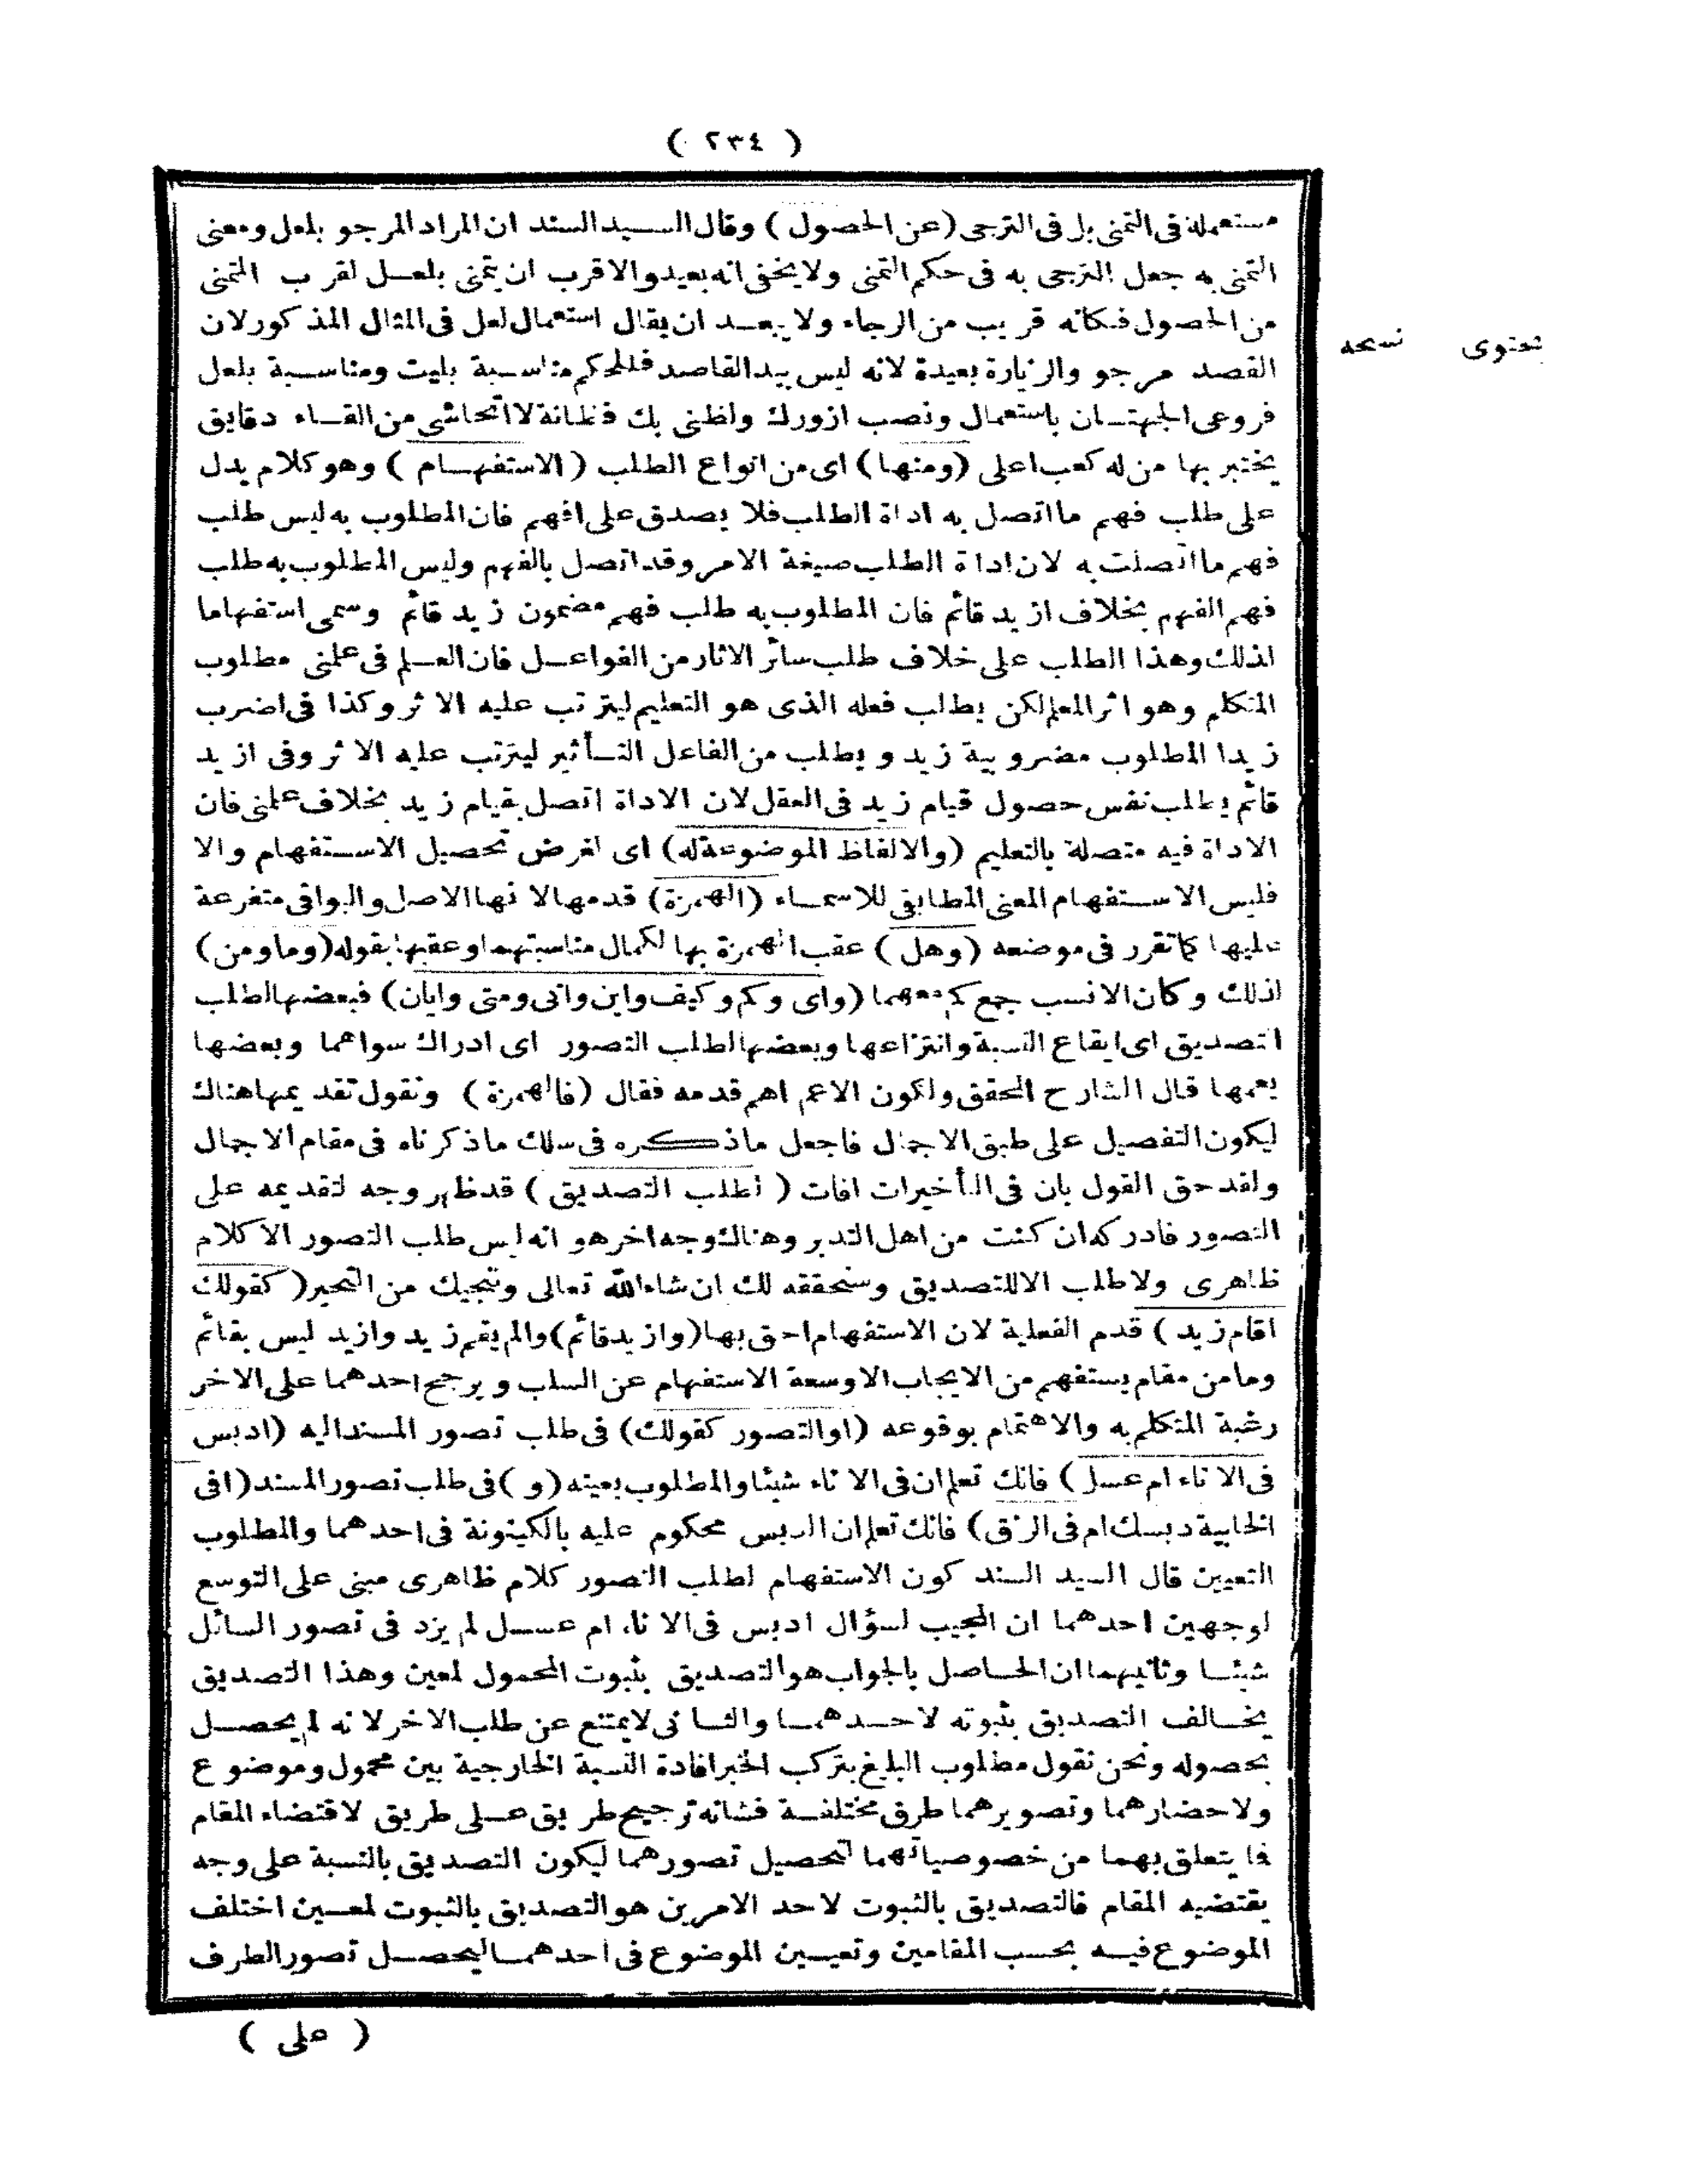 ( ٢٣٤ )
مستعملة فى التمنى بل فى الترجى (عن الحصول) وقال السيد السند ان المراد المرجو بلعل ومعنى
التمنى به جعل الترجى به فى حكم التمنى ولا يخفى انه بعيد والاقرب ان يتمنى بلعل لقرب التمنى
من الحصول فكانه قريب من الرجاء ولا يبعد ان يقال استعمال لعل فى المثال المذكور لان
القصد مرجو والزيارة بعيدة لانه ليس بيد القاصد فللحكم مناسبة بليت ومناسبة بلعل
فروعى الجهتان باستعمال ونصب ازورك واظنى بك فظانة لا اتحاشى من القاء دقايق
يختبر بها من له كعب اعلى (ومنها) اى من انواع الطلب (الاستفهام) وهو كلام يدل
على طلب فهم ما اتصل به اداة الطلب فلا يصدق على افهم فان المطلوب به ليس طلب
فهم ما اتصلت به لان اداة الطلب صيغة الامر وقد اتصل بالفهم وليس المطلوب به طلب
فهم الفهم بخلاف ازيد قائم فان المطلوب به طلب فهم مضمون زيد قائم وسمى استفهاما
لذلك وهذا الطلب على خلاف طلب سائر الاثار من الفواعل فان العلم فى علمنى مطلوب
المتكلم وهو اثر المعلم لكن يطلب فعله الذى هو التعليم ليترتب عليه الاثر وكذا فى اضرب
زيدا المطلوب مضروبية زيد ويطلب من الفاعل التأثير ليترتب عليه الاثر وفى ازيد
قائم يطلب نفس حصول قيام زيد فى العقل لان الاداة اتصل بقيام زيد بخلاف علمنى فان
الاداة فيه متصلة بالتعليم (والالفاظ الموضوعة له) اى لغرض تحصيل الاستفهام والا
فليس الاستفهام المعنى المطابقى للاسماء (الهمزة) قدمها لانها الاصل والبواقى متفرعة
عليها كما تقرر فى موضعه (وهل) عقب الهمزة بها لكمال مناسبتهما وعقبها بقوله (وما ومن)
لذلك وكان الانسب جمع كم معهما (واى وكم وكيف واين وانى ومتى وايان) فبعضها لطلب
التصديق اى ايقاع النسبة وانتزاعها وبعضها لطلب التصور اى ادراك سواهما وبعضها
يعمها قال الشارح المحقق ولكون الاعم اهم قدمه فقال (فالهمزة) ونقول تقديمها هناك
ليكون التفصيل على طبق الاجمال فاجعل ما ذكره فى سلك ما ذكرناه فى مقام الاجمال
ولقد حق القول بان فى التأخيرات افات (لطلب التصديق) قد ظهر وجه لتقديمه على
التصور فادركه ان كنت من اهل التدبر وهناك وجه اخر هو انه ليس طلب التصور الا كلام
ظاهرى ولا طلب الا للتصديق وسنحققه لك ان شاء الله تعالى وننجيك من التحير (كقولك
اقام زيد) قدم الفعلية لان الاستفهام احق بها (وازيد قائم) والم يقم زيد وازيد ليس بقائم
وما من مقام يستفهم من الايجاب الا وسعة الاستفهام عن السلب ويرجح احدهما على الاخر
رغبة المتكلم به والاهتمام بوقوعه (او التصور كقولك) فى طلب تصور المسند اليه (ادبس
فى الاناء ام عسل) فانك تعلم ان فى الاناء شيئا والمطلوب بعينه (و) فى طلب تصور المسند (افى
الخابية دبسك ام فى الزق) فانك تعلم ان الدبس محكوم عليه بالكينونة فى احدهما والمطلوب
التعيين قال السيد السند كون الاستفهام لطلب التصور كلام ظاهرى مبنى على التوسع
لوجهين احدهما ان المجيب لسؤال ادبس فى الاناء ام عسل لم يزد فى تصور السائل
شيئا وثانيهما ان الحاصل بالجواب هو التصديق بثبوت المحمول لمعين وهذا التصديق
يخالف التصديق بثبوته لاحدهما والثانى لا يمتنع عن طلب الاخر لانه لم يحصل
بحصوله ونحن نقول مطلوب البليغ بتركب الخبر افادة النسبة الخارجية بين محمول وموضوع
ولاحضارهما وتصويرهما طرق مختلفة فشانه ترجيح طريق على طريق لاقتضاء المقام
فما يتعلق بهما من خصوصياتهما لتحصيل تصورهما ليكون التصديق بالنسبة على وجه
يقتضيه المقام فالتصديق بالثبوت لاحد الامرين هو التصديق بالثبوت لمعين اختلف
الموضوع فيه بحسب المقامين وتعيين الموضوع فى احدهما ليحصل تصور الطرف
( على )
تحتوى نسخه